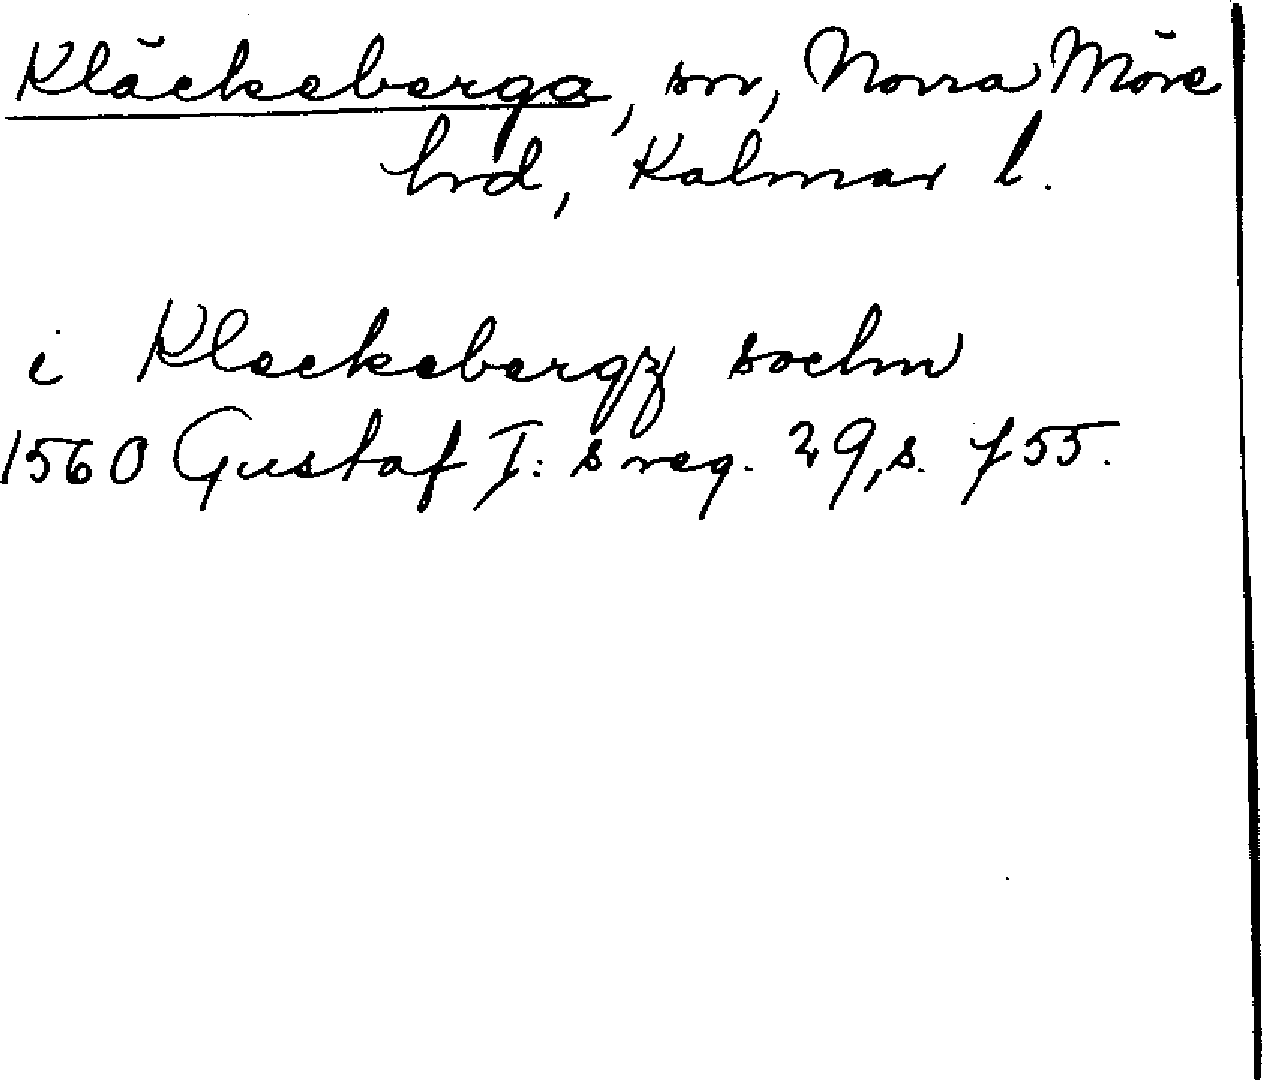 Kläckeberga, sn, Norra Möre
hrd, Kalmar l.
i Kleckebergz sochn
1560 Gustaf I:s reg. 29, s. 755.